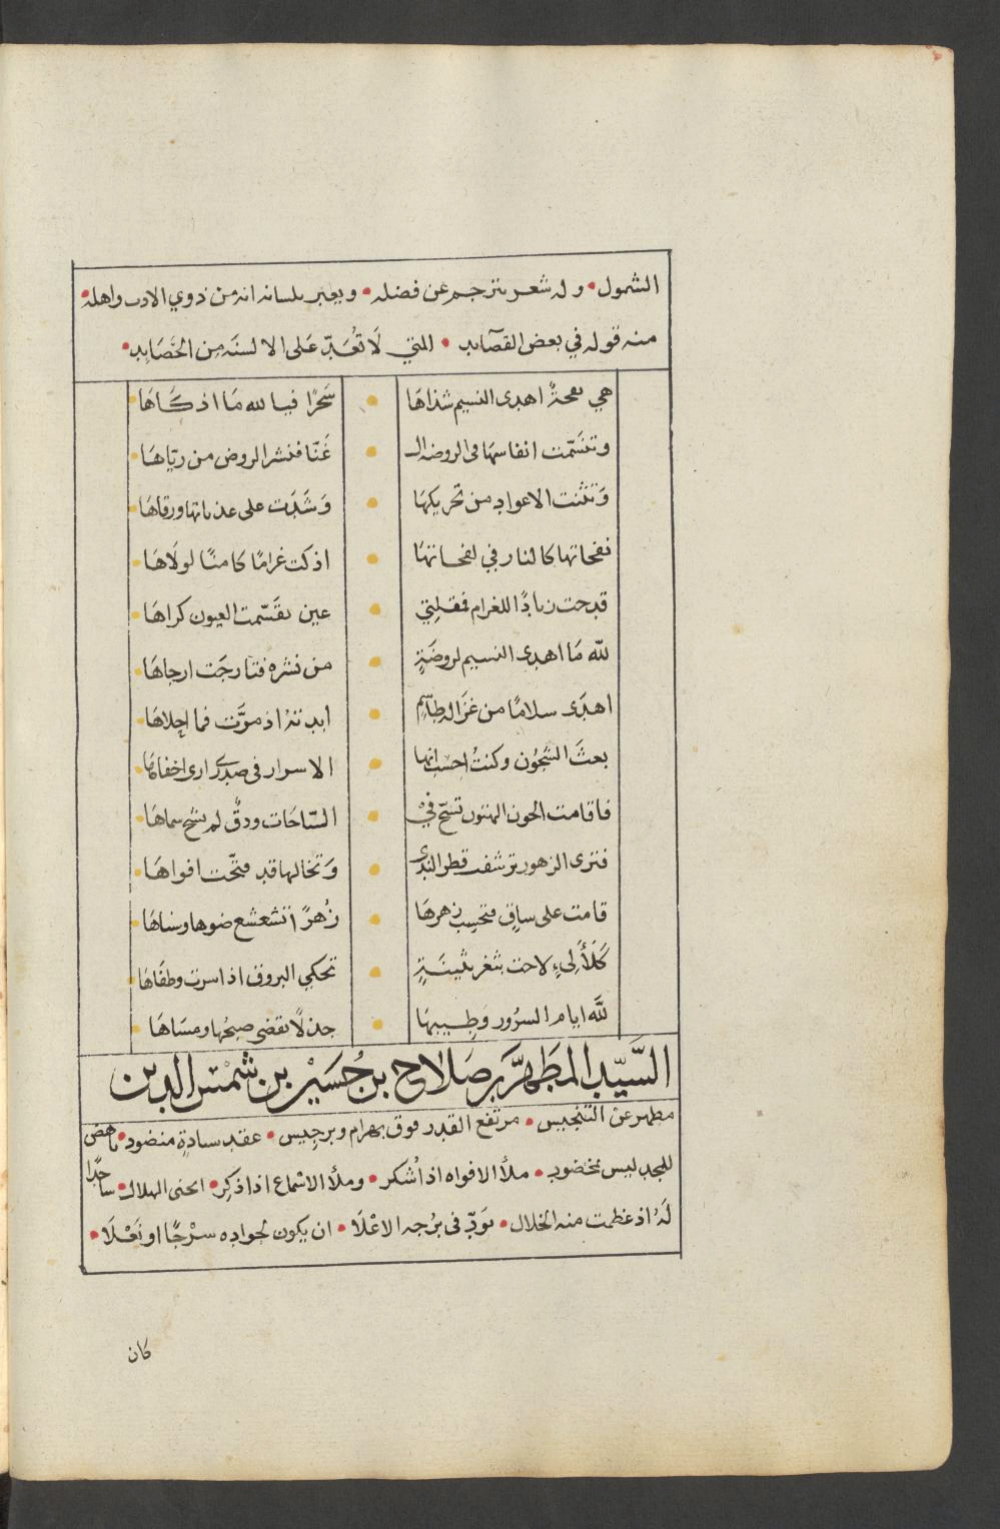 الشمول • وله شعر يترجم عن فضله • ويعبر بلسانه انه من ذوي الادب واهله •
منه قوله في بعض القصآيد • التي لَا تُعَدّ عَلى الالسنَه من الحَصَايد •
هي نفحةٌ اهدى النسيم شذاهَا • سَحَرًا فيا لله مَا اذكَاهَا •
وتنسَّمت انفاسهَا فى الروضه الـ • غَنّا فنشر الروض من ريّاهَا •
وَتثنت الاعواد من تحريكهَا • وَشَدَت على عذباتها ورقاهَا •
نفحاتها كالنار في لفحاتهَا • اذكت غرامًا كامنًا لولَاهَا •
قدحت زنادًا للغرام فمقلتي • عين تقسَّمت العيون كراهَا •
لله مَا اهدى النسيم لروضَةٍ • من نشره فتارجَت ارجاهَا •
اهدَى سلامًا من غزاله • ابدته اذ مرَّت فما احلاهَا •
بعثَ الشجُون وكنتُ احسب انها • الاسرار فى صدرى ارى اخفاهَا •
فاقامت الهتون تسَحّ في • السَّاحَات ودقٌ لم سماهَا •
فترى الزهور ترشفت قطر الندى • وَتخالها قد فتّحت افواهَا •
قامت على ساقٍ فتحسب زهرهَا • زُهرًا تشعشع ضوها وسناهَا •
كَلآلىءٍ لاحت بثغر بثينَةٍ • تحكي البروق اذا سرت وطفَاهَا •
لله ايام السرُور وَطيبهَا • جذلًا تقضى صبحُها ومسَاهَا •
السَّيّد المطَهَّر بن صَلَاح بن حُسَيْن بن شمْس الدين
مطهر عن التنجيس • مرتفع القدر فوق بهرام وبرجيس • عقد سادةٍ منضود • ناهض
للمجد ليس بمخضود • ملأ الافواه اذا شكر • وملأ الاسْماع اذا ذكِر • انحنى الهلال • ساجدًا
لَهُ اذ عظمت منه الخلال • تَودّ فى بُرجه الاعْلَا • ان يكون لجواده سرْجًا او نَعْلَا •
كان